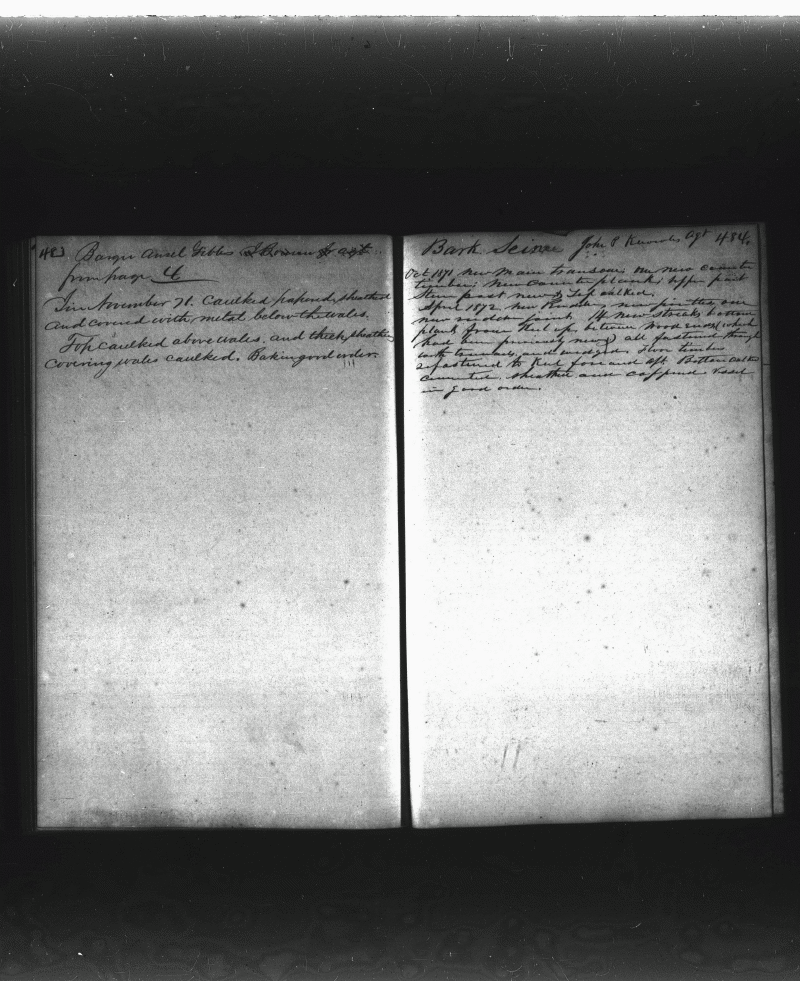 Barque Ansel Gibbs
from page 4
Tin November 71. Caulked papered, sheathed
and covered with metal below the wales.
Top caulked above wales. and sheathe
covering wales caulked. Bark in good order.
Bark Seine John P Knowles Agt 484
Oct 1871 New Main transom new counter
timbers; New Counter plank; upper part
Stern post new & Top calked.
April 1872. New Rudder new
new 14 New Streaks bottom
plank from Keel up, between wood ends (which
had been previously new) all fastened through
with and wedged. Floor timbers
fastened to Keel fore and aft Bottom calked
sheathed and coppered Vessel
in good order.